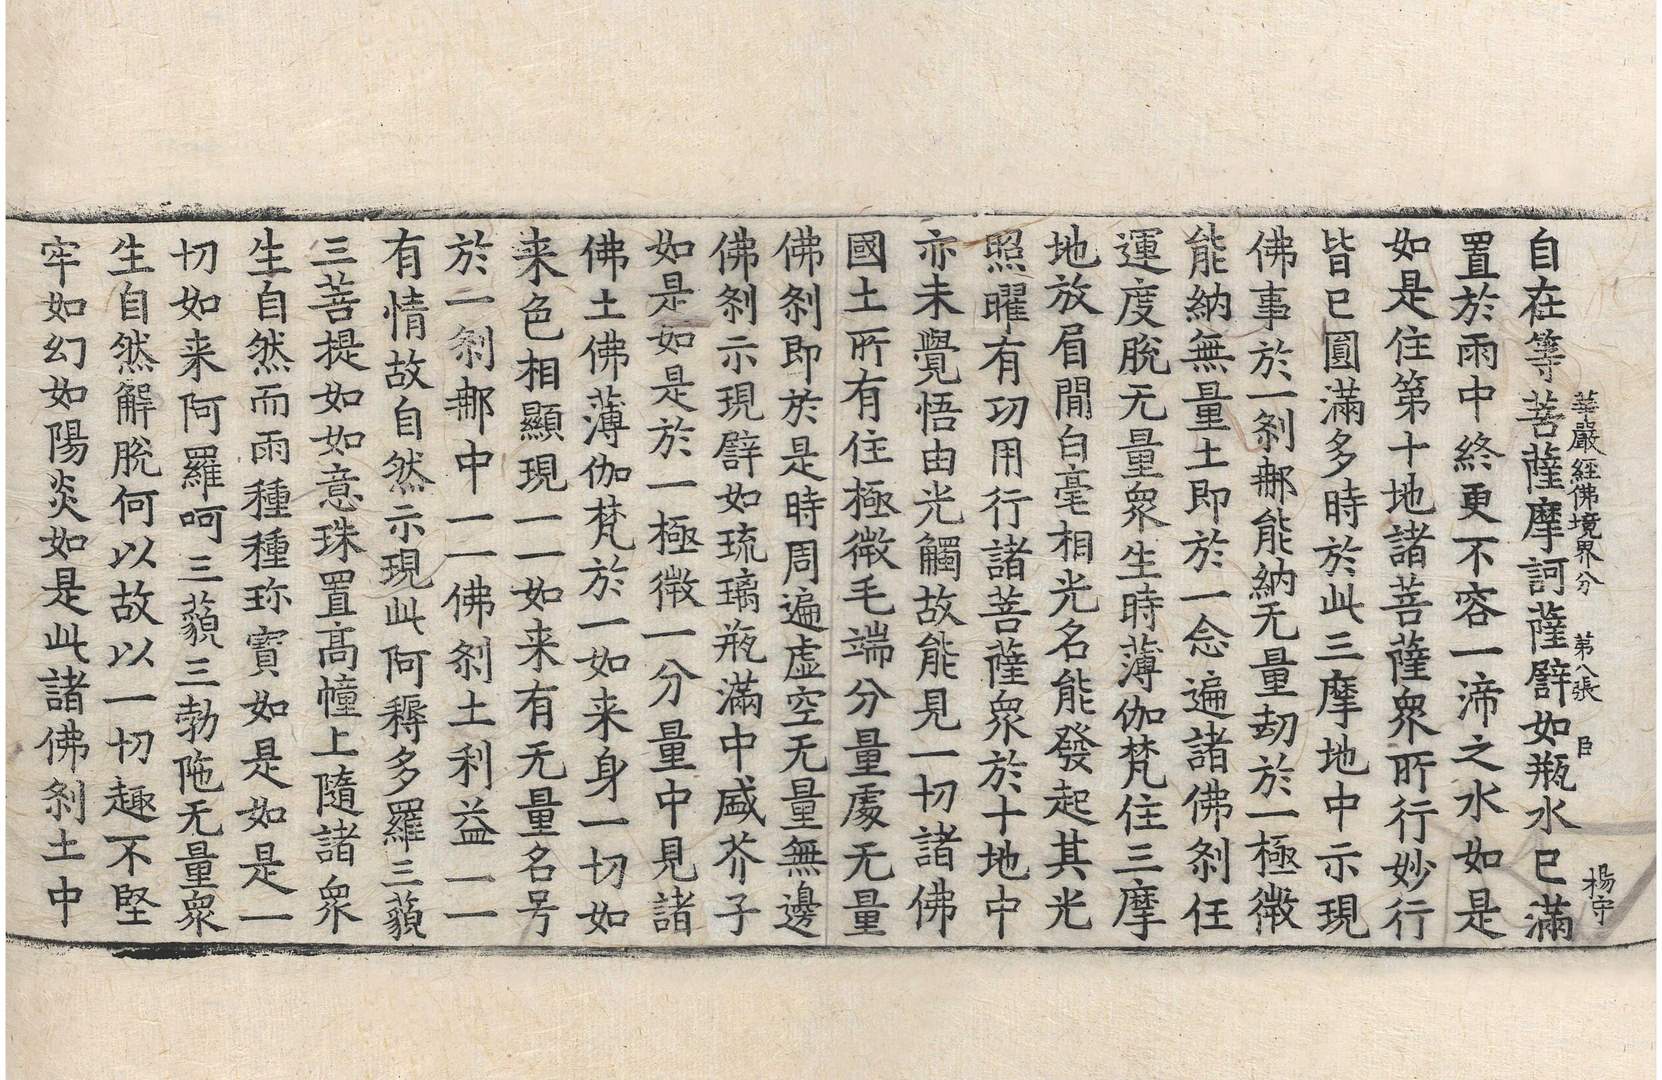 華嚴經佛境界分 第八張 臣 楊守
自在等菩薩摩訶薩譬如瓶水已滿
置於雨中終更不容一渧之水如是
如是住第十地諸菩薩衆所行妙行
皆已圓滿多時於此三摩地中示現
佛事於一剎那能納无量劫於一極微
能納無量土即於一念遍諸佛剎任
運度脫无量衆生時薄伽梵住三摩
地放眉閒白毫相光名能發起其光
照曜有功用行諸菩薩衆於十地中
亦未覺悟由光觸故能見一切諸佛
國土所有住極微毛端分量處无量
佛剎即於是時周遍虛空无量無邊
佛剎示現譬如琉璃瓶滿中盛芥子
如是如是於一極微一分量中見諸
佛土佛薄伽梵於一如来身一切如
来色相顯現一一如来有无量名号
於一剎那中一一佛剎土利益一一
有情故自然示現此阿耨多羅三藐
三菩提如如意珠置高幢上隨諸衆
生自然而雨種種珎寶如是如是一
切如来阿羅呵三藐三勃陁无量衆
生自然解脫何以故以一切趣不堅
牢如幻如陽炎如是此諸佛剎土中